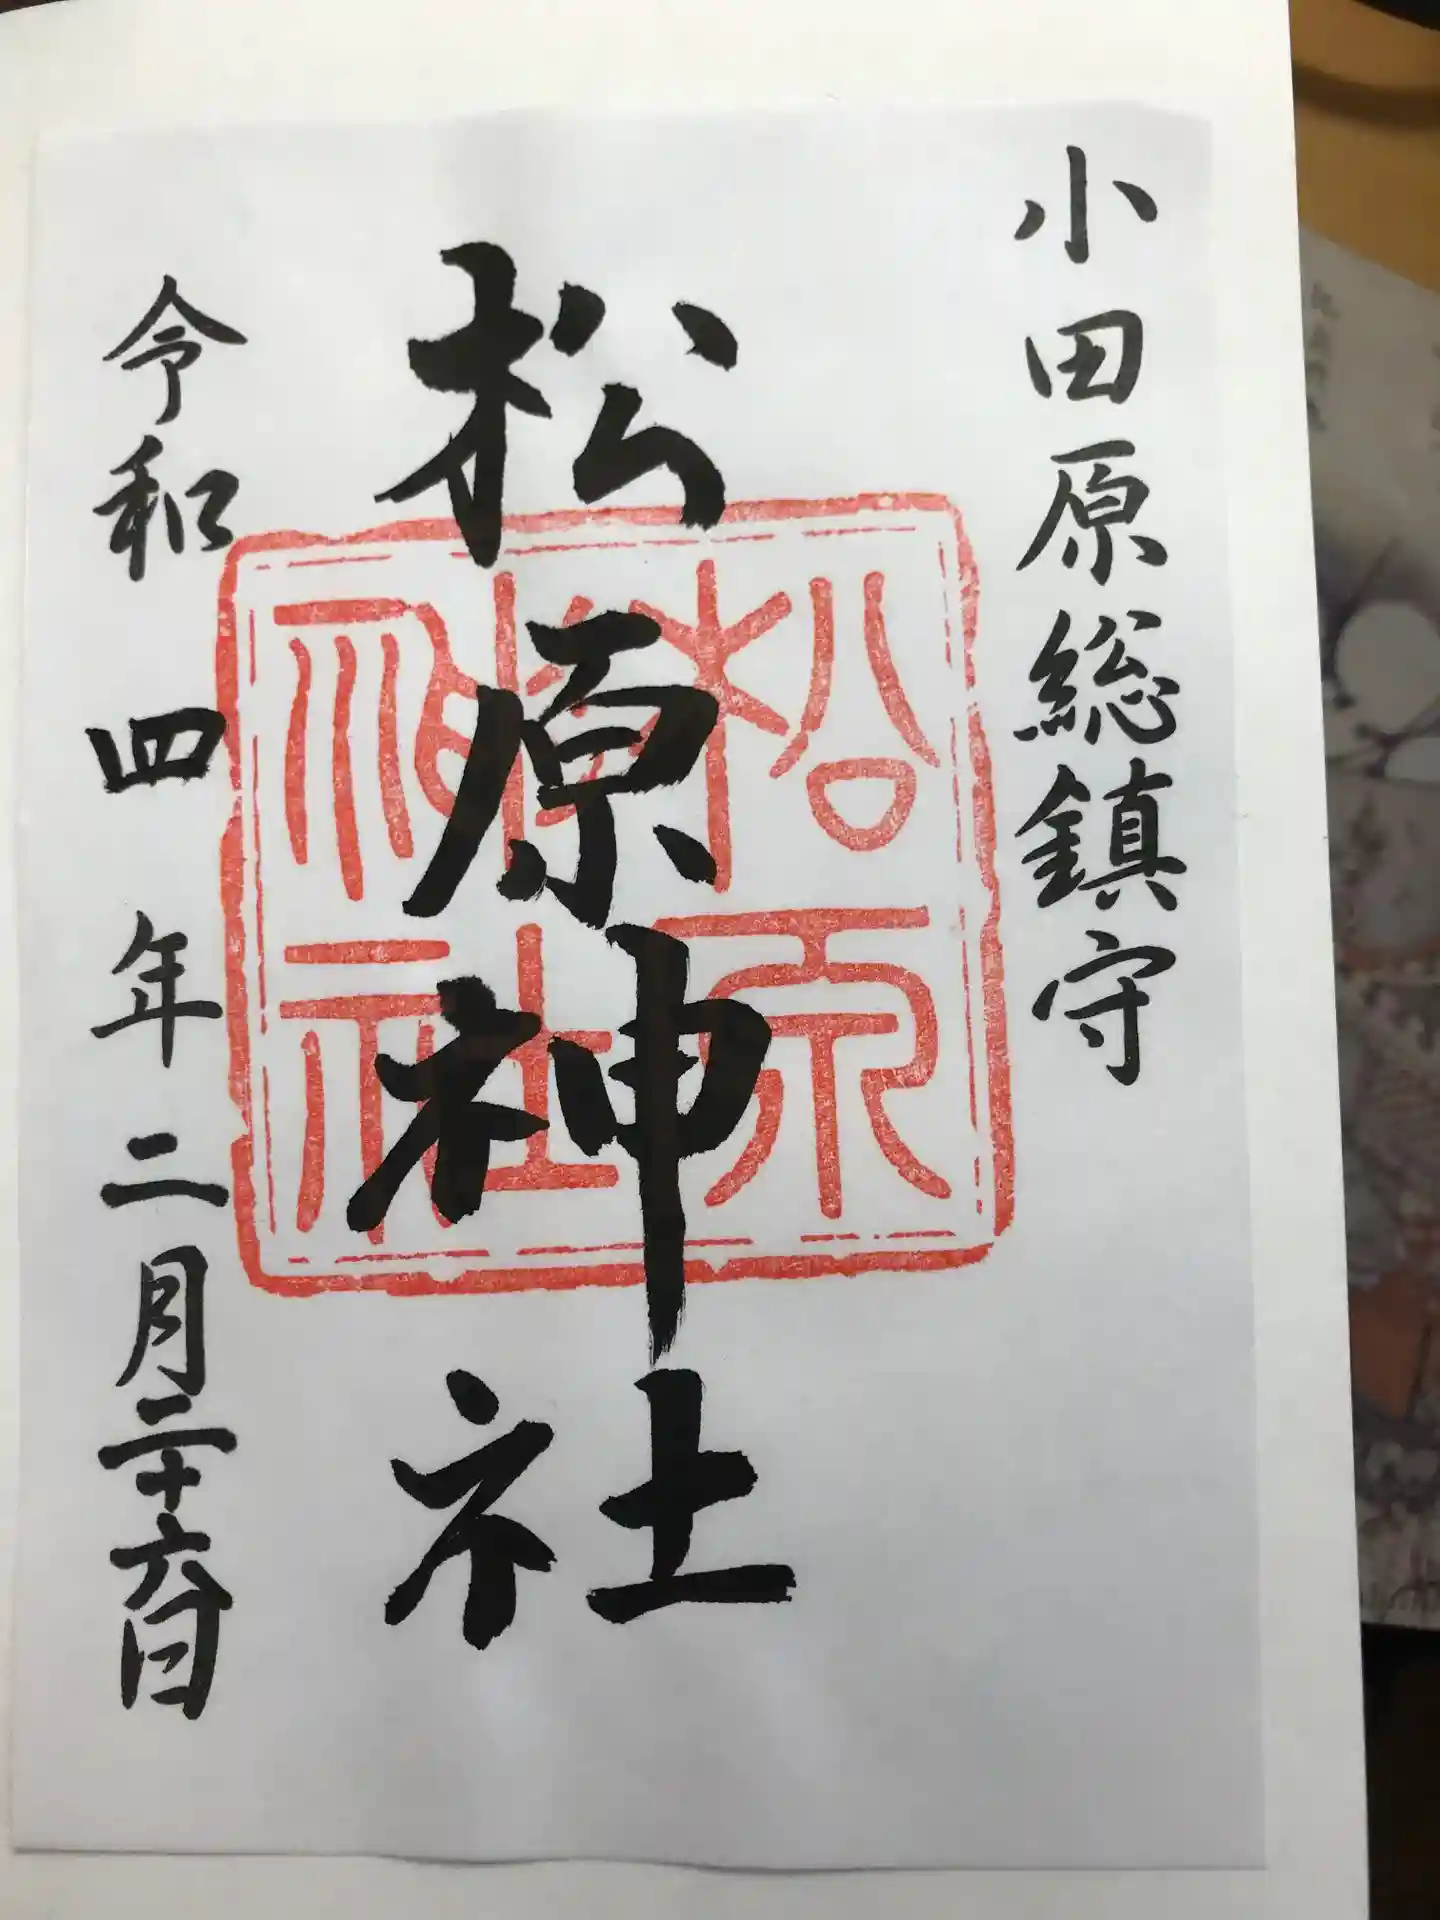 小田原総鎮守
松原神社
松原神社
令和四年二月二十六日